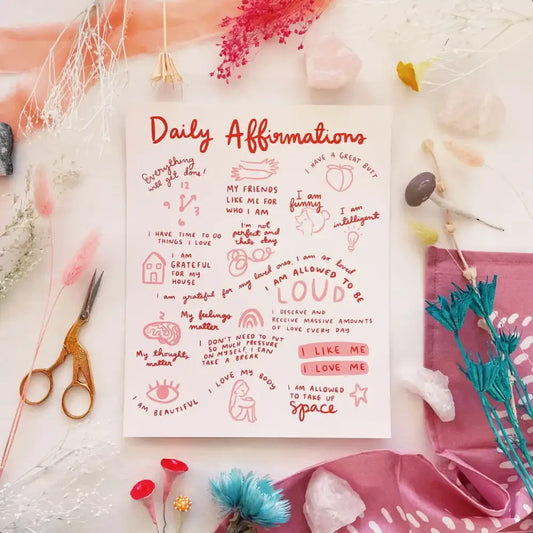 Daily Affirmations
Everything
will get done!
12
3
6
9
MY FRIENDS
LIKE ME FOR
WHO I AM
I HAVE A GREAT BUTT
I am
funny
I am
intelligent
I HAVE TIME TO DO
THINGS I LOVE
I'm not
perfect and
thats okay
I AM
GRATEFUL
FOR MY
HOUSE
I am grateful for my loved ones, I am so loved
I AM ALLOWED TO BE
LOUD
My feelings
matter
I DESERVE AND
RECEIVE MASSIVE AMOUNTS
OF LOVE EVERY DAY
My thoughts
matter
I DON'T NEED TO PUT
SO MUCH PRESSURE
ON MYSELF, I CAN
TAKE A BREAK
I LIKE ME
I LOVE ME
I AM BEAUTIFUL
I LOVE MY BODY
I AM ALLOWED
TO TAKE UP
SPACE